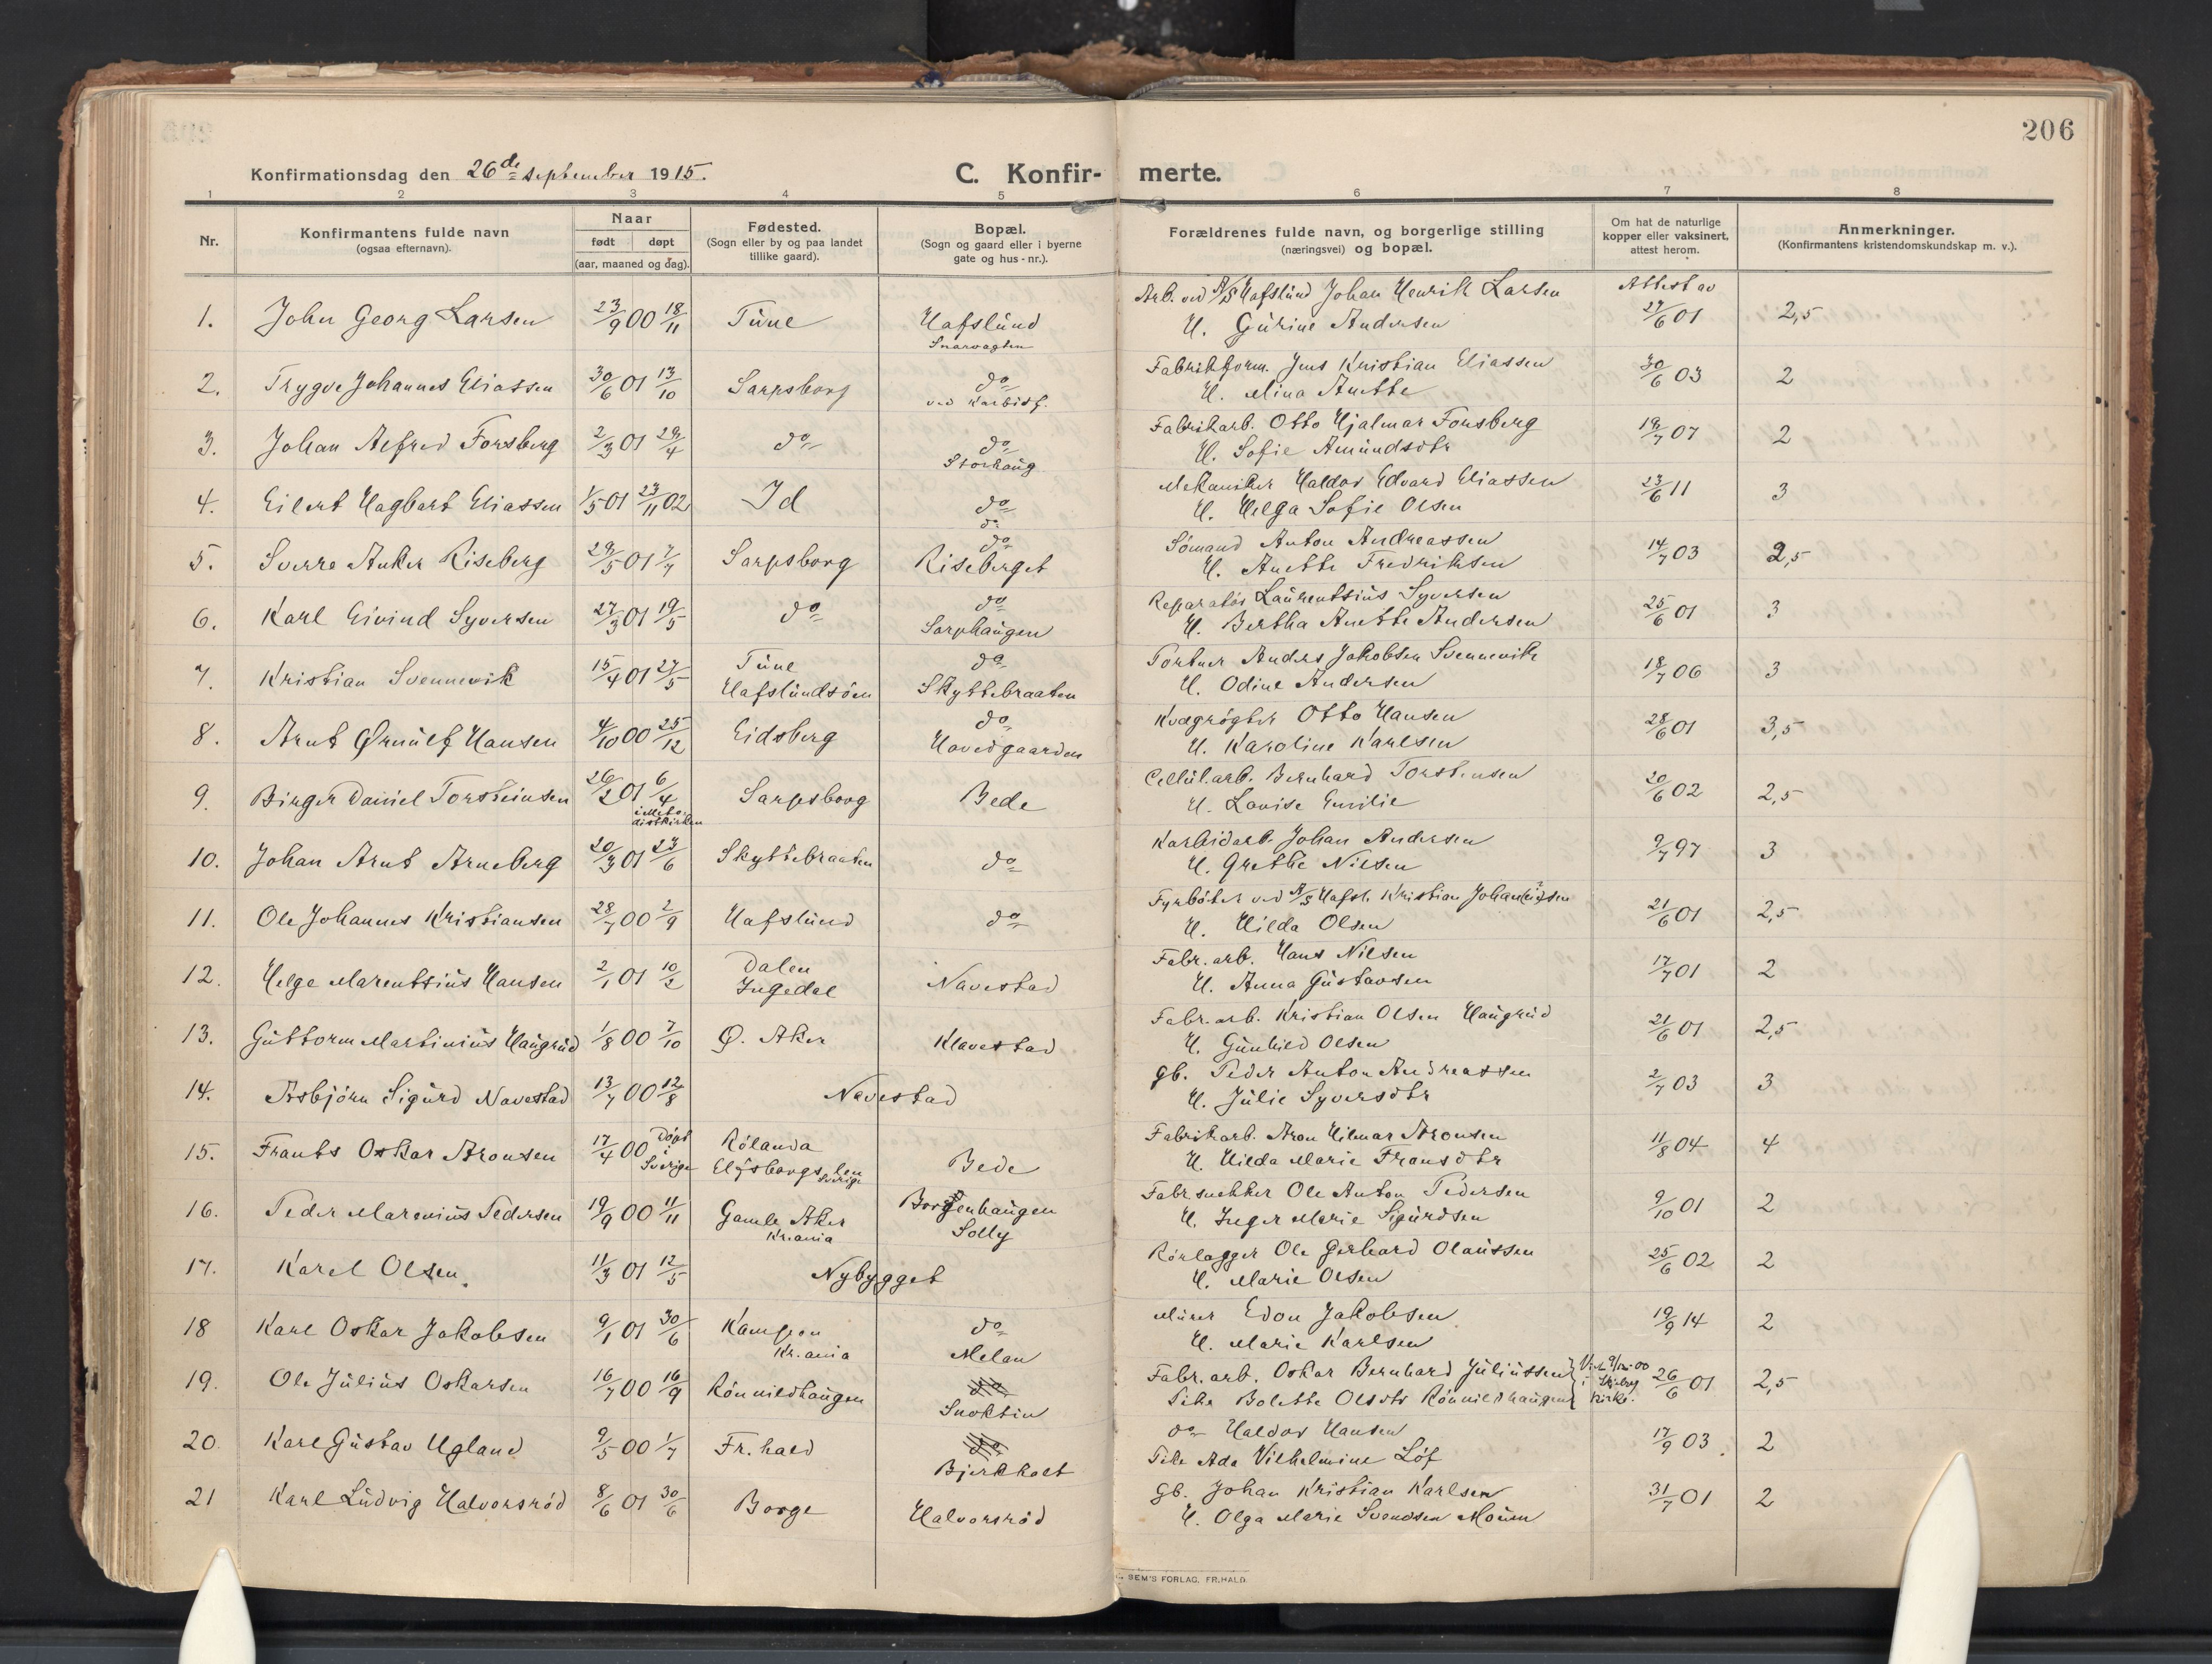 206
Konfirmationsdag den 26de september 1915.
C. Konfir- merte.
1 2 3 4 5 6 7 8
Nr.
Konfirmantens fulde navn
(ogsaa efternavn).
Naar
født døpt
(aar, maaned og dag).
Fødested.
(Sogn eller by og paa landet
tillike gaard).
Bopæl.
(Sogn og gaard eller i byerne
gate og hus-nr.).
Forældrenes fulde navn, og borgerlige stilling
(næringsvei) og bopæl.
Om hat de naturlige
kopper eller vaksinert,
attest herom.
Anmerkninger.
(Konfirmantens kristendomskundskap m. v.).
Arb. ved A/S Hafslund Johan Henrik Larsen Attest av
1. John Georg Larsen 23/9 00 18/11 Tune Hafslund H. Gurine Andersen 27/6 01 2,5
Snarvagten
2. Trygve Johannes Eliassen 30/6 01 13/10 Sarpsborg do Fabrikform. Jens Kristian Eliassen 30/6 03 2
ved Karbidf. H. Mina Anette
3. Johan Alfred Forsberg 2/3 01 29/4 do do Fabrikarb. Otto Hjalmar Forsberg 19/7 07 2
Storhaug H. Sofie Amundsdtr
4. Eilert Hagbart Eliassen 1/5 01 23/11 02 Id do Mekaniker Haldor Edvard Eliassen 23/6 11 3
do H. Helga Sofie Olsen
5. Sverre Anker Riseberg 29/5 01 7/7 Sarpsborg do Sømand Anton Andreassen 14/7 03 2,5
Riseberget H. Anette Fredriksen
6. Karl Eivind Syversen 27/3 01 19/5 do do Reparatør Laurentsius Syversen 25/6 01 3
Sarphaugen H. Bertha Anette Andersen
7. Kristian Svennevik 15/4 01 27/5 Tune do Portner Anders Jakobsen Svennevik 18/7 06 3
Hafslundsøen Skyttebraaten H. Odine Andersen
8. Arnt Ørnulf Hansen 4/10 00 25/12 Eidsberg do Kvægrøgter Otto Hansen 28/6 01 3,5
Hovedgaarden H. Karoline Karlsen
9. Birger Daniel Torsteinsen 26/2 01 6/4 Sarpsborg Bede Cellul.arb. Bernhard Torstensen 20/6 02 2,5
i Meto-
distkirken H. Lovise Emilie
10. Johan Arnt Arneberg 20/3 01 23/6 Skyttebraaten do Karbidarb. Johan Andersen 9/7 97 3
H. Grethe Nilsen
11. Ole Johannes Kristiansen 28/7 00 2/9 Hafslund do Fyrbøter ved A/S Hafsl. Kristian Johan(ni)sen 21/6 01 2,5
H. Hilda Olsen
12. Helge Marentsius Hansen 2/1 01 10/2 Dalen Navestad Fabr.arb. Hans Nilsen 17/7 01 2
Ingedal H. Anna Gustavsen
13. Guttorm Martinius Haugrud 1/8 00 7/10 Ø. Aker Klavestad Fabr.arb. Kristian Olsen Haugrud 21/6 01 2,5
H. Gunhild Olsen
14. Asbjørn Sigurd Navestad 13/7 00 12/8 Navestad Gb. Peder Anton Andreassen 2/7 03 3
H. Julie Syversdtr
15. Frants Oskar Aronsen 17/4 00 Døpt i Sverige Rølanda Bede Fabrikarb. Aron Hilmar Aronsen 11/8 04 4
Elfsborgs len Sverige H. Hilda Marie Fransdtr
16. Peder Marenius Pedersen 19/9 00 11/11 Gamle Aker Borgenhaugen Fabr snekker Ole Anton Pedersen 9/10 01 2
Kr.ania Solly H. Inger Marie Sigurdsen
17. Karel Olsen. 11/3 01 12/5 Nybygget Rørlægger Ole Gerhard Olaussen 25/6 02 2
H. Marie Olsen
18 Karl Oskar Jakobsen 9/1 01 30/6 Kampen do Murer Edon Jakobsen 19/9 14 2
Kr.ania Melan H. Marie Karlsen
19. Ole Julius Oskarsen 16/7 00 16/9 Rønnildhaugen do Fabr.arb. Oskar Bernhard Juliussen Viet 9/12-00 26/6 01 2,5
Snoktin Pike Bolette Olsdtr Rønnildhaugen i Skjeberg kirke.
20. Karl Gustav Ugland 9/5 00 1/7 Fr.hald do do Haldor Hansen 17/9 03. 2
Bjerkholt Pike Ada Vilhelmine Löf
21 Karl Ludvig Halvorsrød 8/6 01 30/6 Borge Halvorsrød Gb. Johan Kristian Karlsen 31/7 01 2
H. Olga Marie Svendsen Moum
SEM'S FORLAG. FR.HALD.